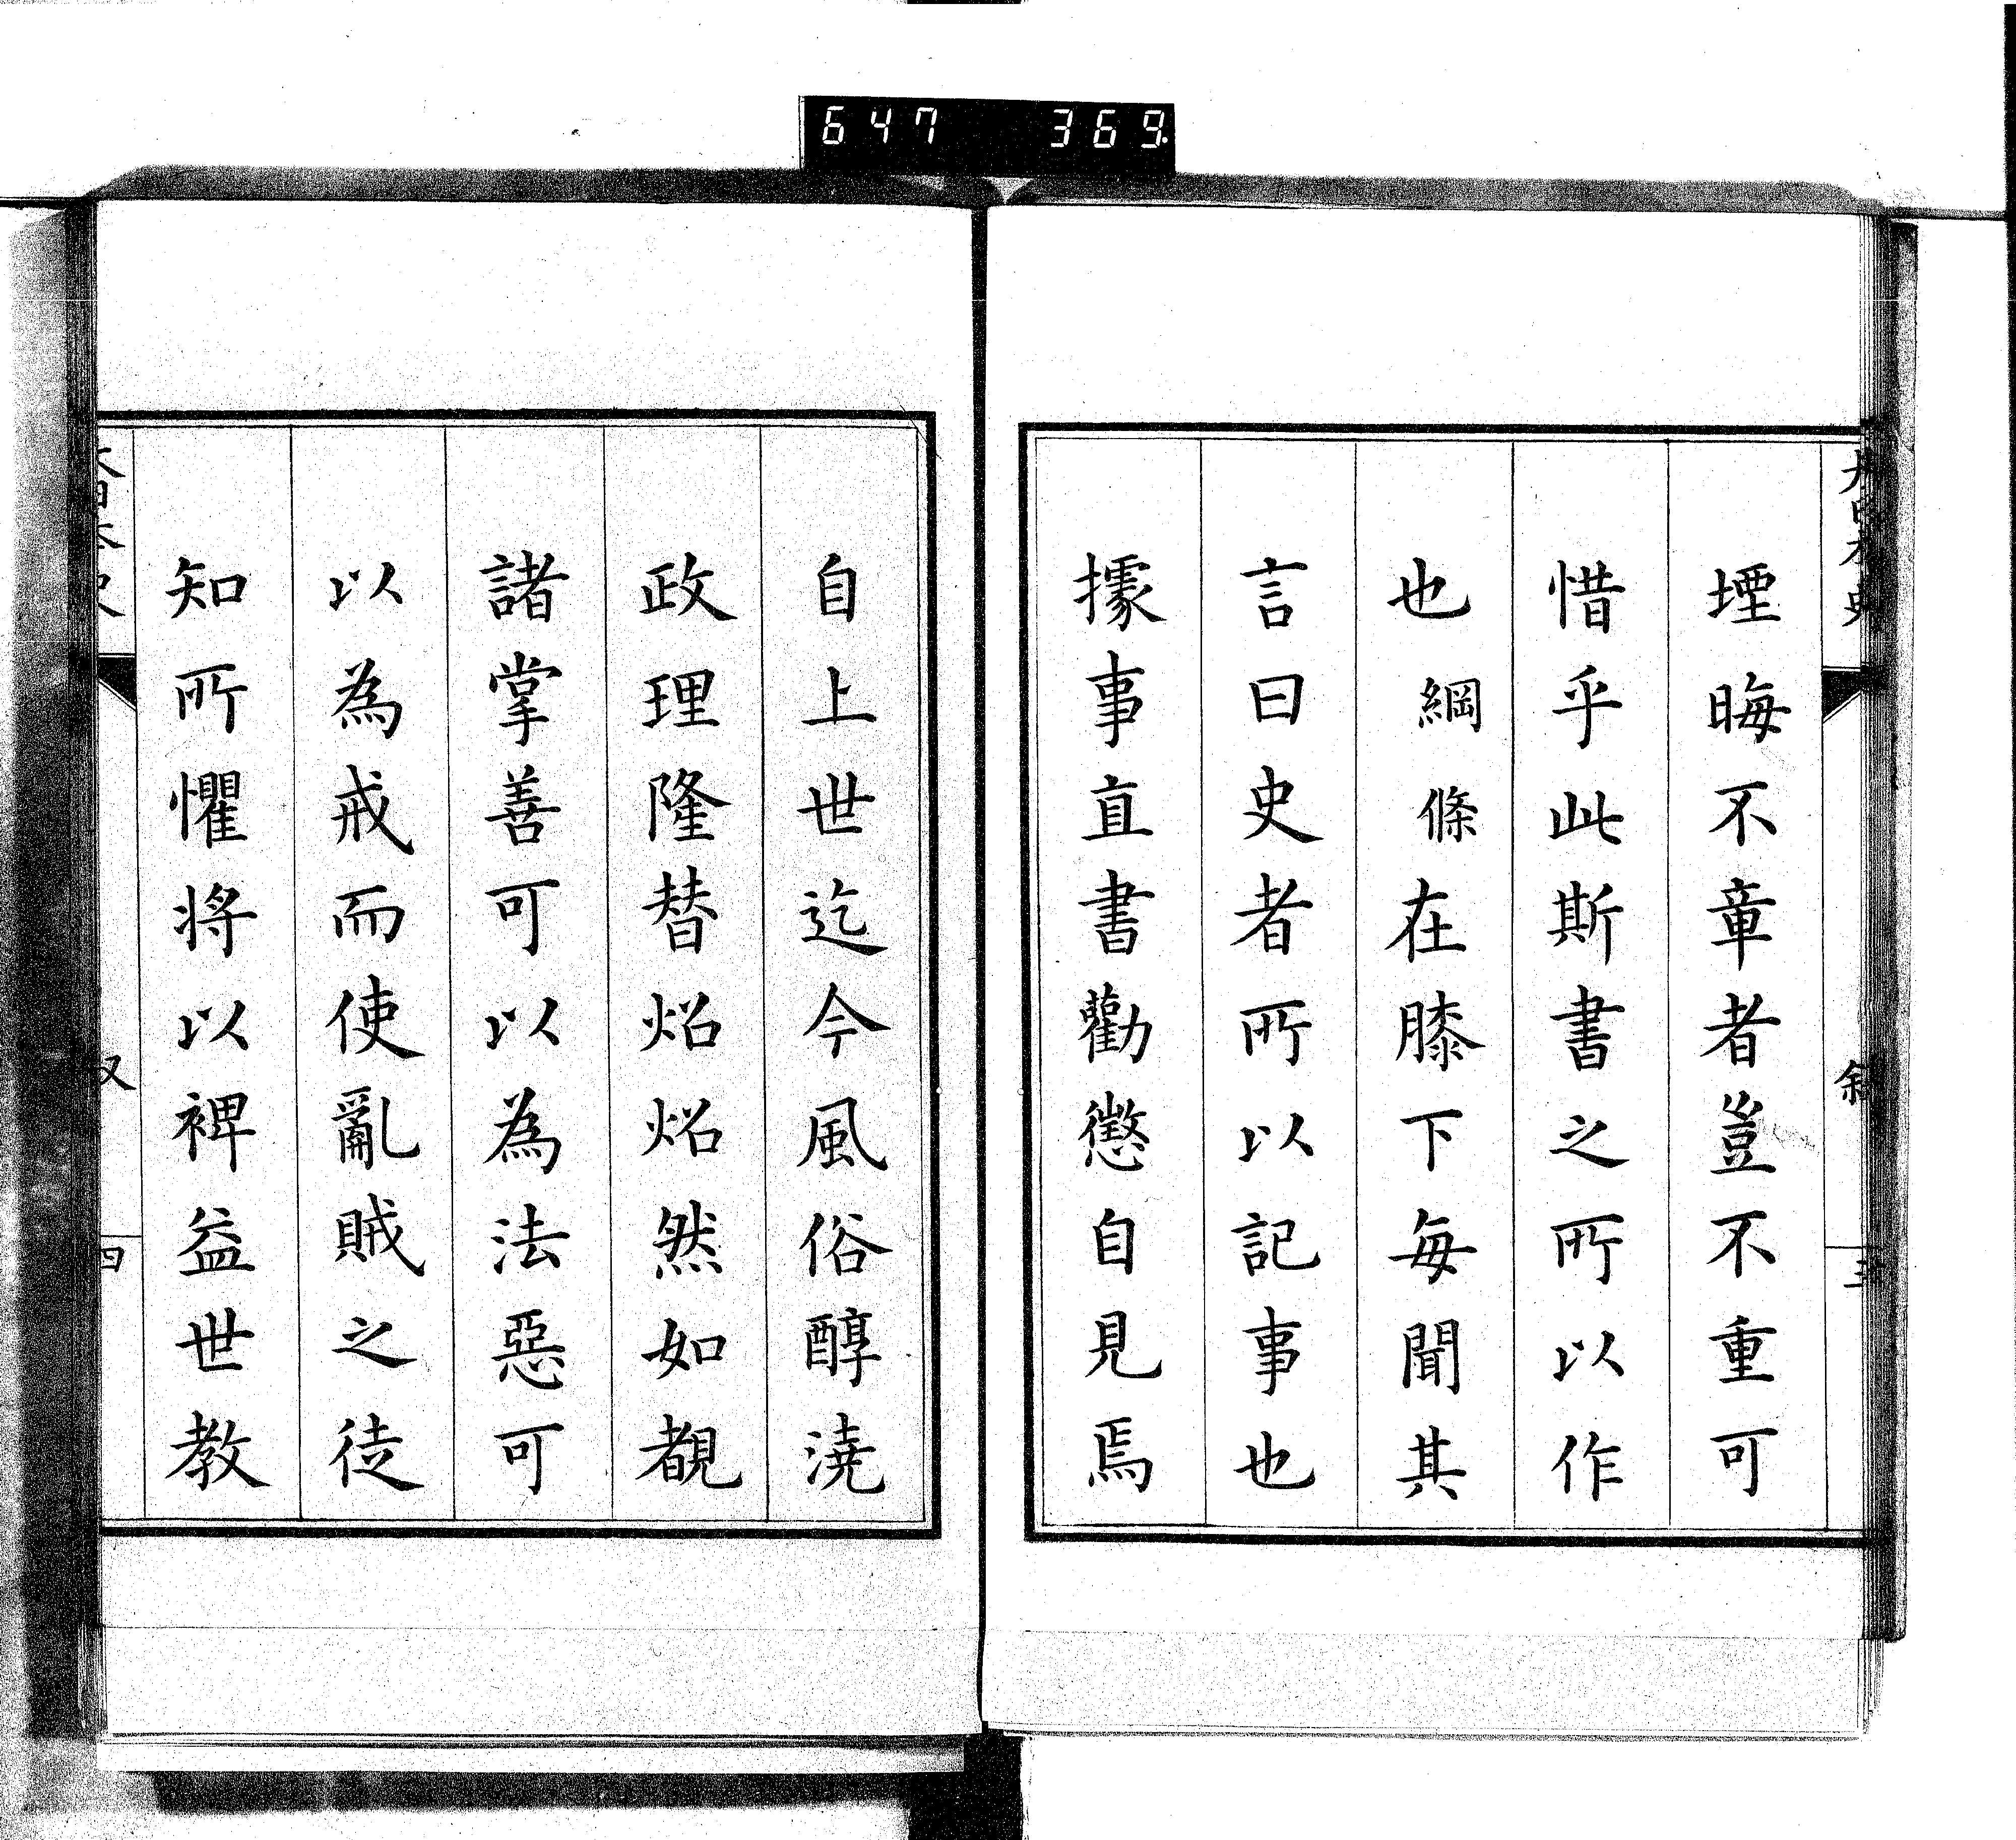 647 369.
大日本史 敘 三
堙晦不章者豈不重可
惜乎此斯書之所以作
也綱條在膝下每聞其
言曰史者所以記事也
據事直書勸懲自見焉
自上世迄今風俗醇澆
政理隆替炤炤然如覩
諸掌善可以為法惡可
以為戒而使亂賊之徒
知所懼將以裨益世教
大日本史 四